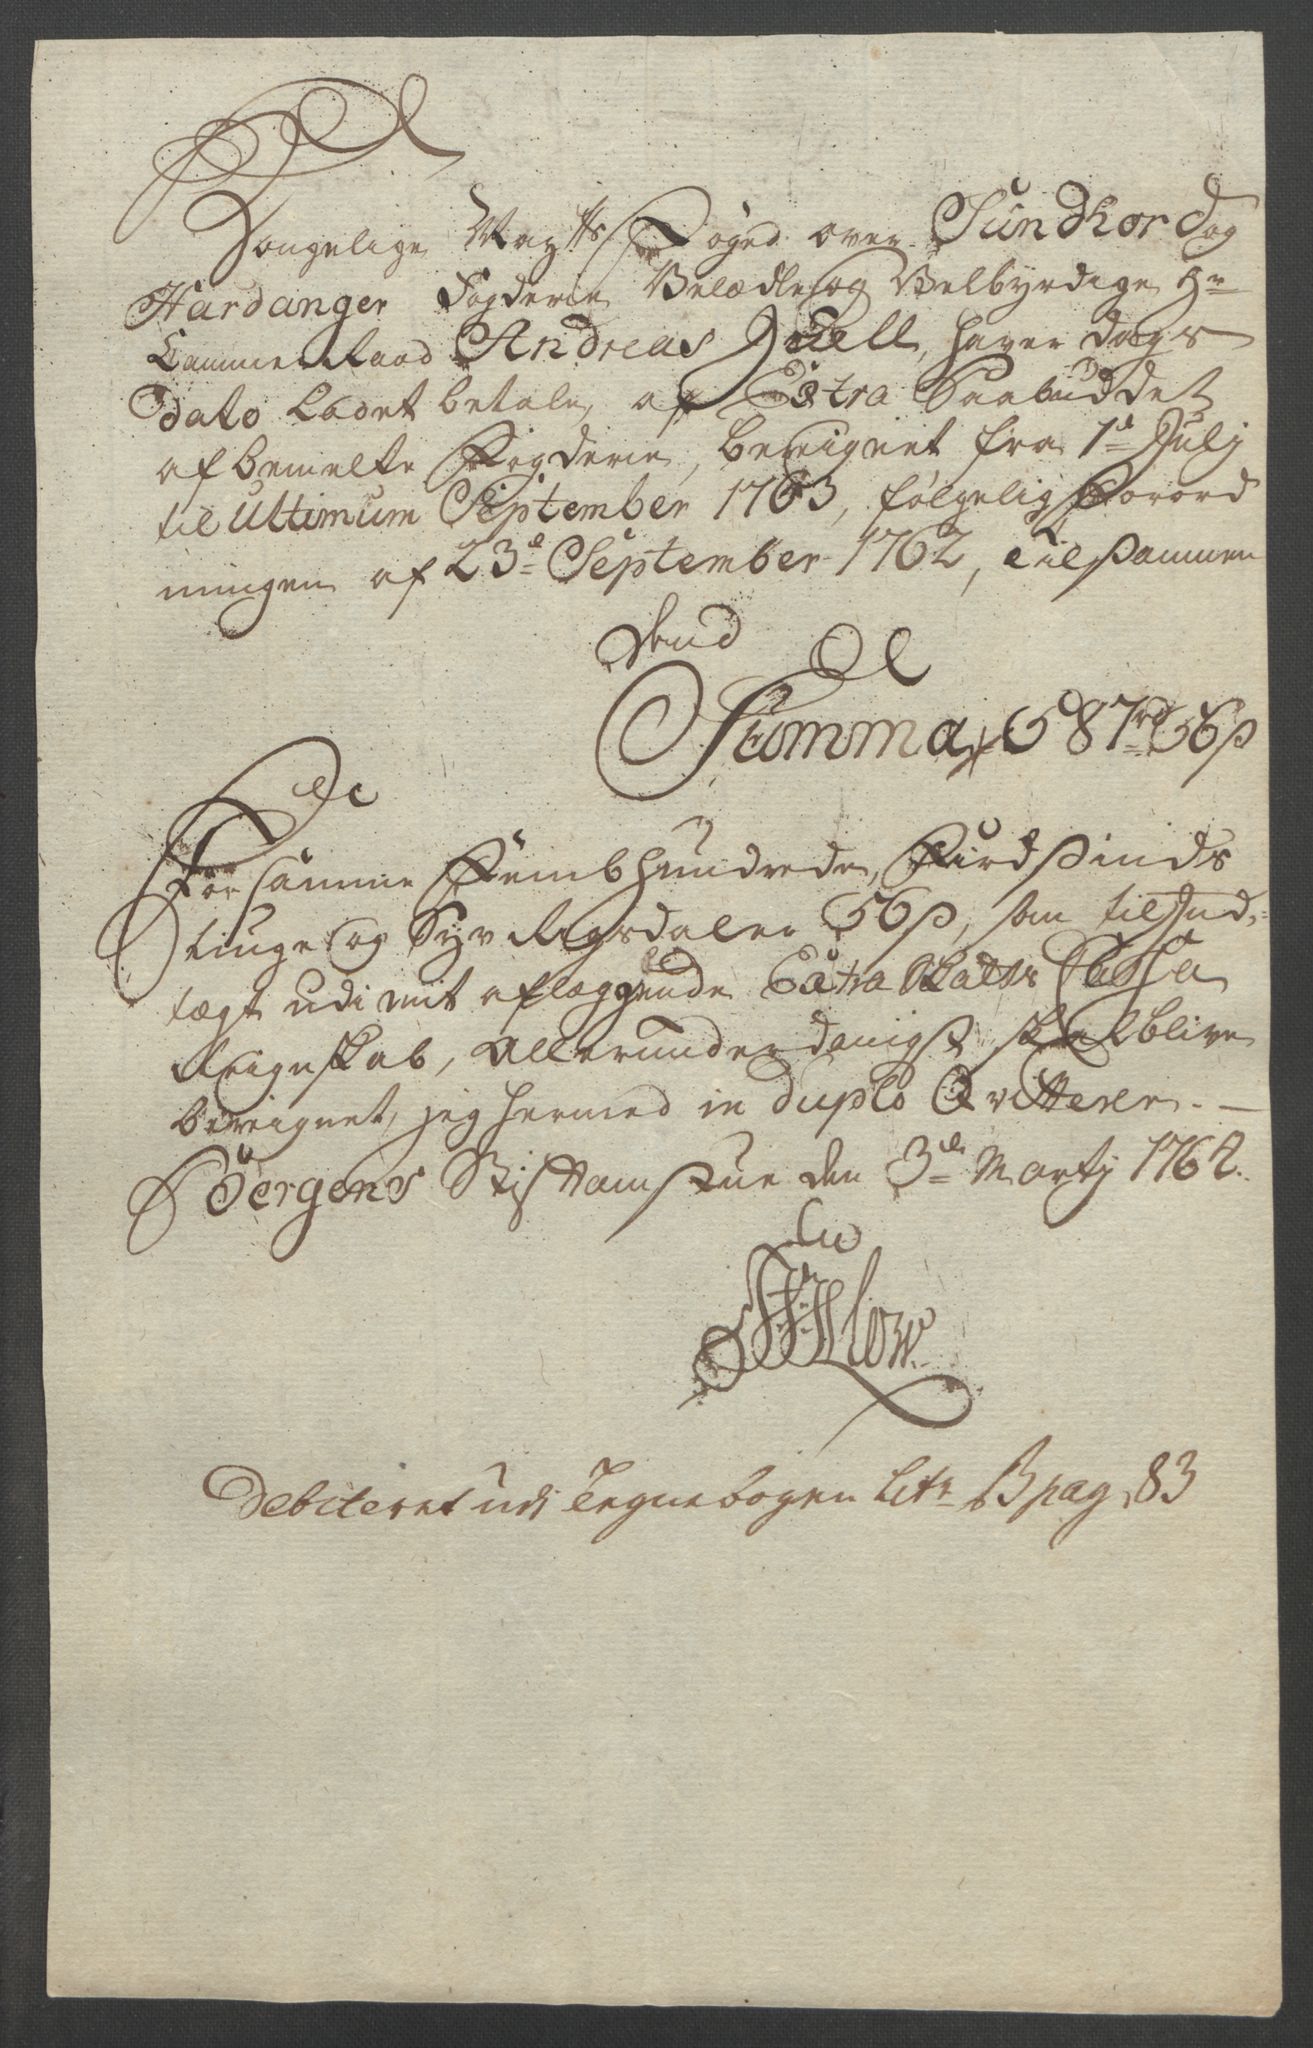 Kongelige Mayts Foged over Sundhord og
Hardanger Fogderie Velædle og Velbyrdige Hr
Cammerraad Andreas Juell, haver dags
dato Ladet betale, af Extra Paabuddet
af bemelte Fogderie, bereignet fra 1d Julj
til Ultimum September 1763, følgelig Forord
ningen af 23d September 1762, tilsammen
Den
Summa 587rd 56s
For samme Fembhundrede, Fiirdsinds
tiuge og Syv Rigsdaler 56s, som til Ind-
tægt udi mit aflæggende Extra Skatts Cassa
Reignskab, Allerunderdanigst skal blive
bereignet, jeg hermed in duplo Qvitterer. -
Bergens Stiftamstue den 3de Martij 1764.
Bülow
Debiteret udi Tegnebogen Litr B pag 83